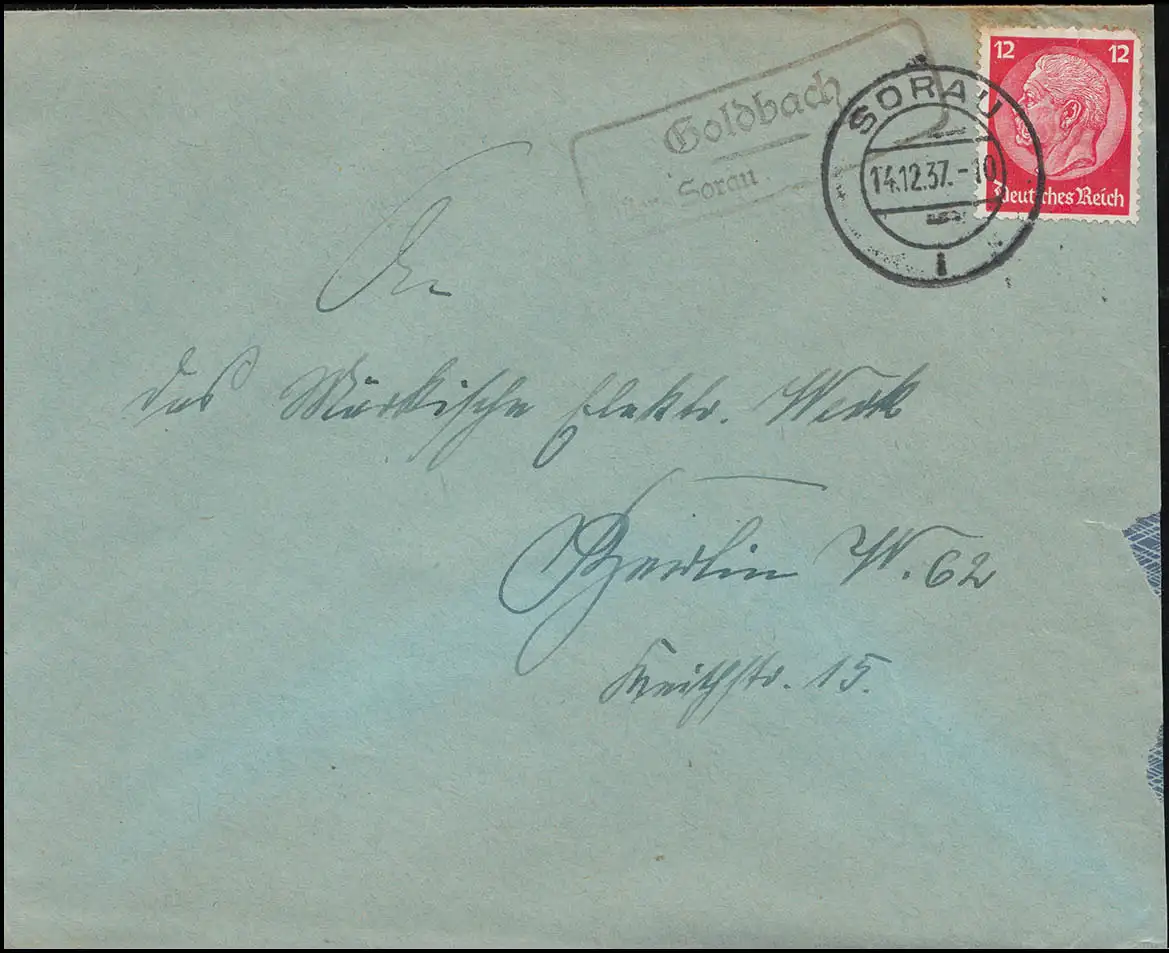 12 12
Deutsches Reich
Goldbach
über Sorau
SORAU
14.12.37.-10
An
das Märkische Elektr. Werk
Berlin W. 62
Keithstr. 15.